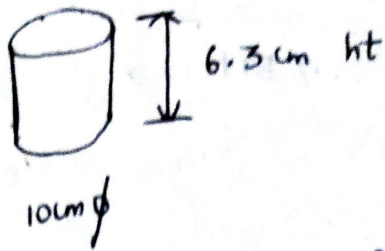 6.3 cm ht
10cm ϕ